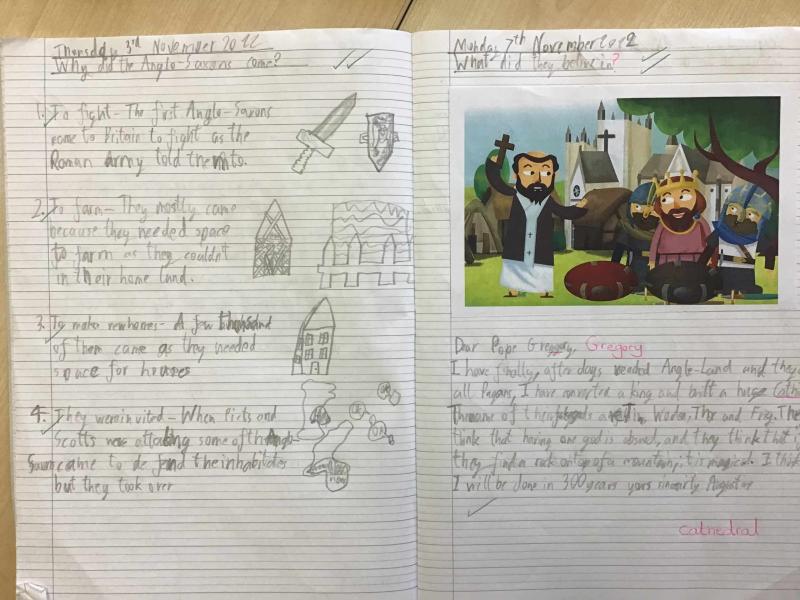 Thursday 3rd November 2022
Why did the Anglo-Saxons come?
1. To fight - The first Anglo-Saxons
came to Britain to fight as the
Roman army told them to.
2. To farm - They mostly came
because they needed space
to farm as they couldn't
in their home land.
3. To make new homes - A few thousand
of them came as they needed
space for houses
4. They were invited - When Picts and
Scotts were attacking some of the Anglo
Saxons came to defend the inhabitates
but they took over
Monday 7th November 2022
What did they believe in?
Dear Pope Gregory, Gregory
I have finally, after days reeded Angle-Land and they
all Pagans, I have converted a king and built a huge Cath
The name of their gods are Tiw, Woden, Thor and Frig. The
think that having one god is absurd, and they think that i
they find a rock on top of a mountain, it is magical. I think
I will be done in 300 years yours sincerly Augustus
cathedral